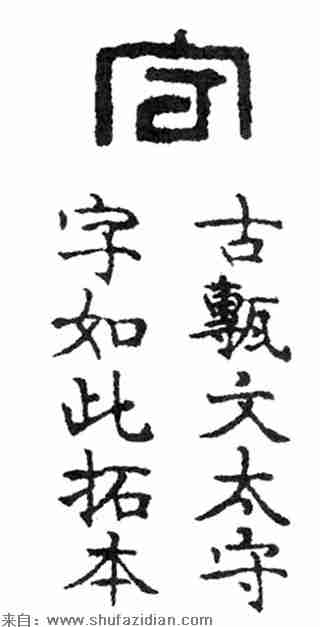 守
古甎文太守
字如此拓本
来自：www.shufazidian.com